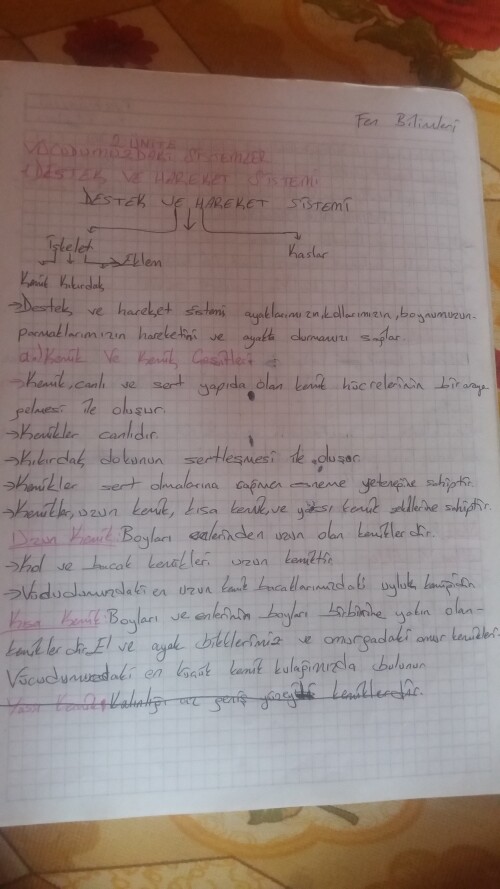 Fen Bilimleri
2. ÜNİTE
VÜCUDUMUZDAKİ SİSTEMLER
1) DESTEK VE HAREKET SİSTEMİ
DESTEK VE HAREKET SİSTEMİ
İskelet
Kaslar
Kemik Kıkırdak Eklem
→Destek ve hareket sistemi ayaklarımızın, kollarımızın, boynumuzun-
parmaklarımızın hareketini ve ayakta durmamızı sağlar.
a) Kemik Ve Kemik Çeşitleri:
→Kemik, canlı ve sert yapıda olan kemik hücrelerinin bir araya
gelmesi ile oluşur.
→Kemikler canlıdır.
→Kıkırdak dokunun sertleşmesi ile oluşur.
→Kemikler sert olmalarına rağmen esneme yeteneğine sahiptir.
→Kemikler, uzun kemik, kısa kemik, ve yassı kemik şekillerine sahiptir.
Uzun Kemik: Boyları enlerinden uzun olan kemiklerdir.
→Kol ve bacak kemikleri uzun kemiktir.
→Vücudumuzdaki en uzun kemik bacaklarımızdaki uyluk kemiğidir.
Kısa Kemik: Boyları ve enlerinin boyları birbirine yakın olan-
kemiklerdir. El ve ayak bileklerimiz ve omurgadaki omur kemikleri.
Vücudumuzdaki en küçük kemik kulağımızda bulunur.
Yassı Kemik: Kalınlığı az geniş yüzeyli kemiklerdir.